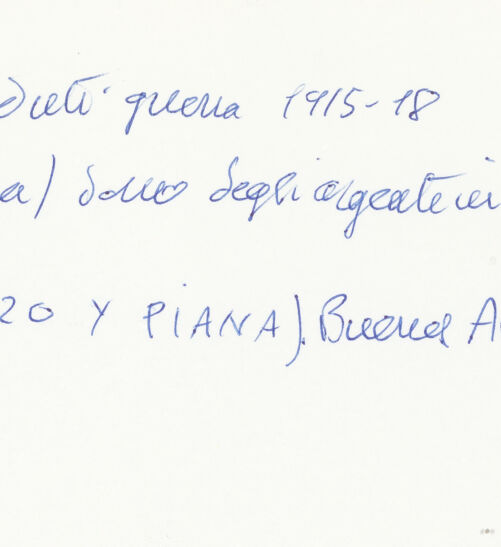 guerra 1915-18
a) dono degli argentini
ZO Y PIANA). Buenos A